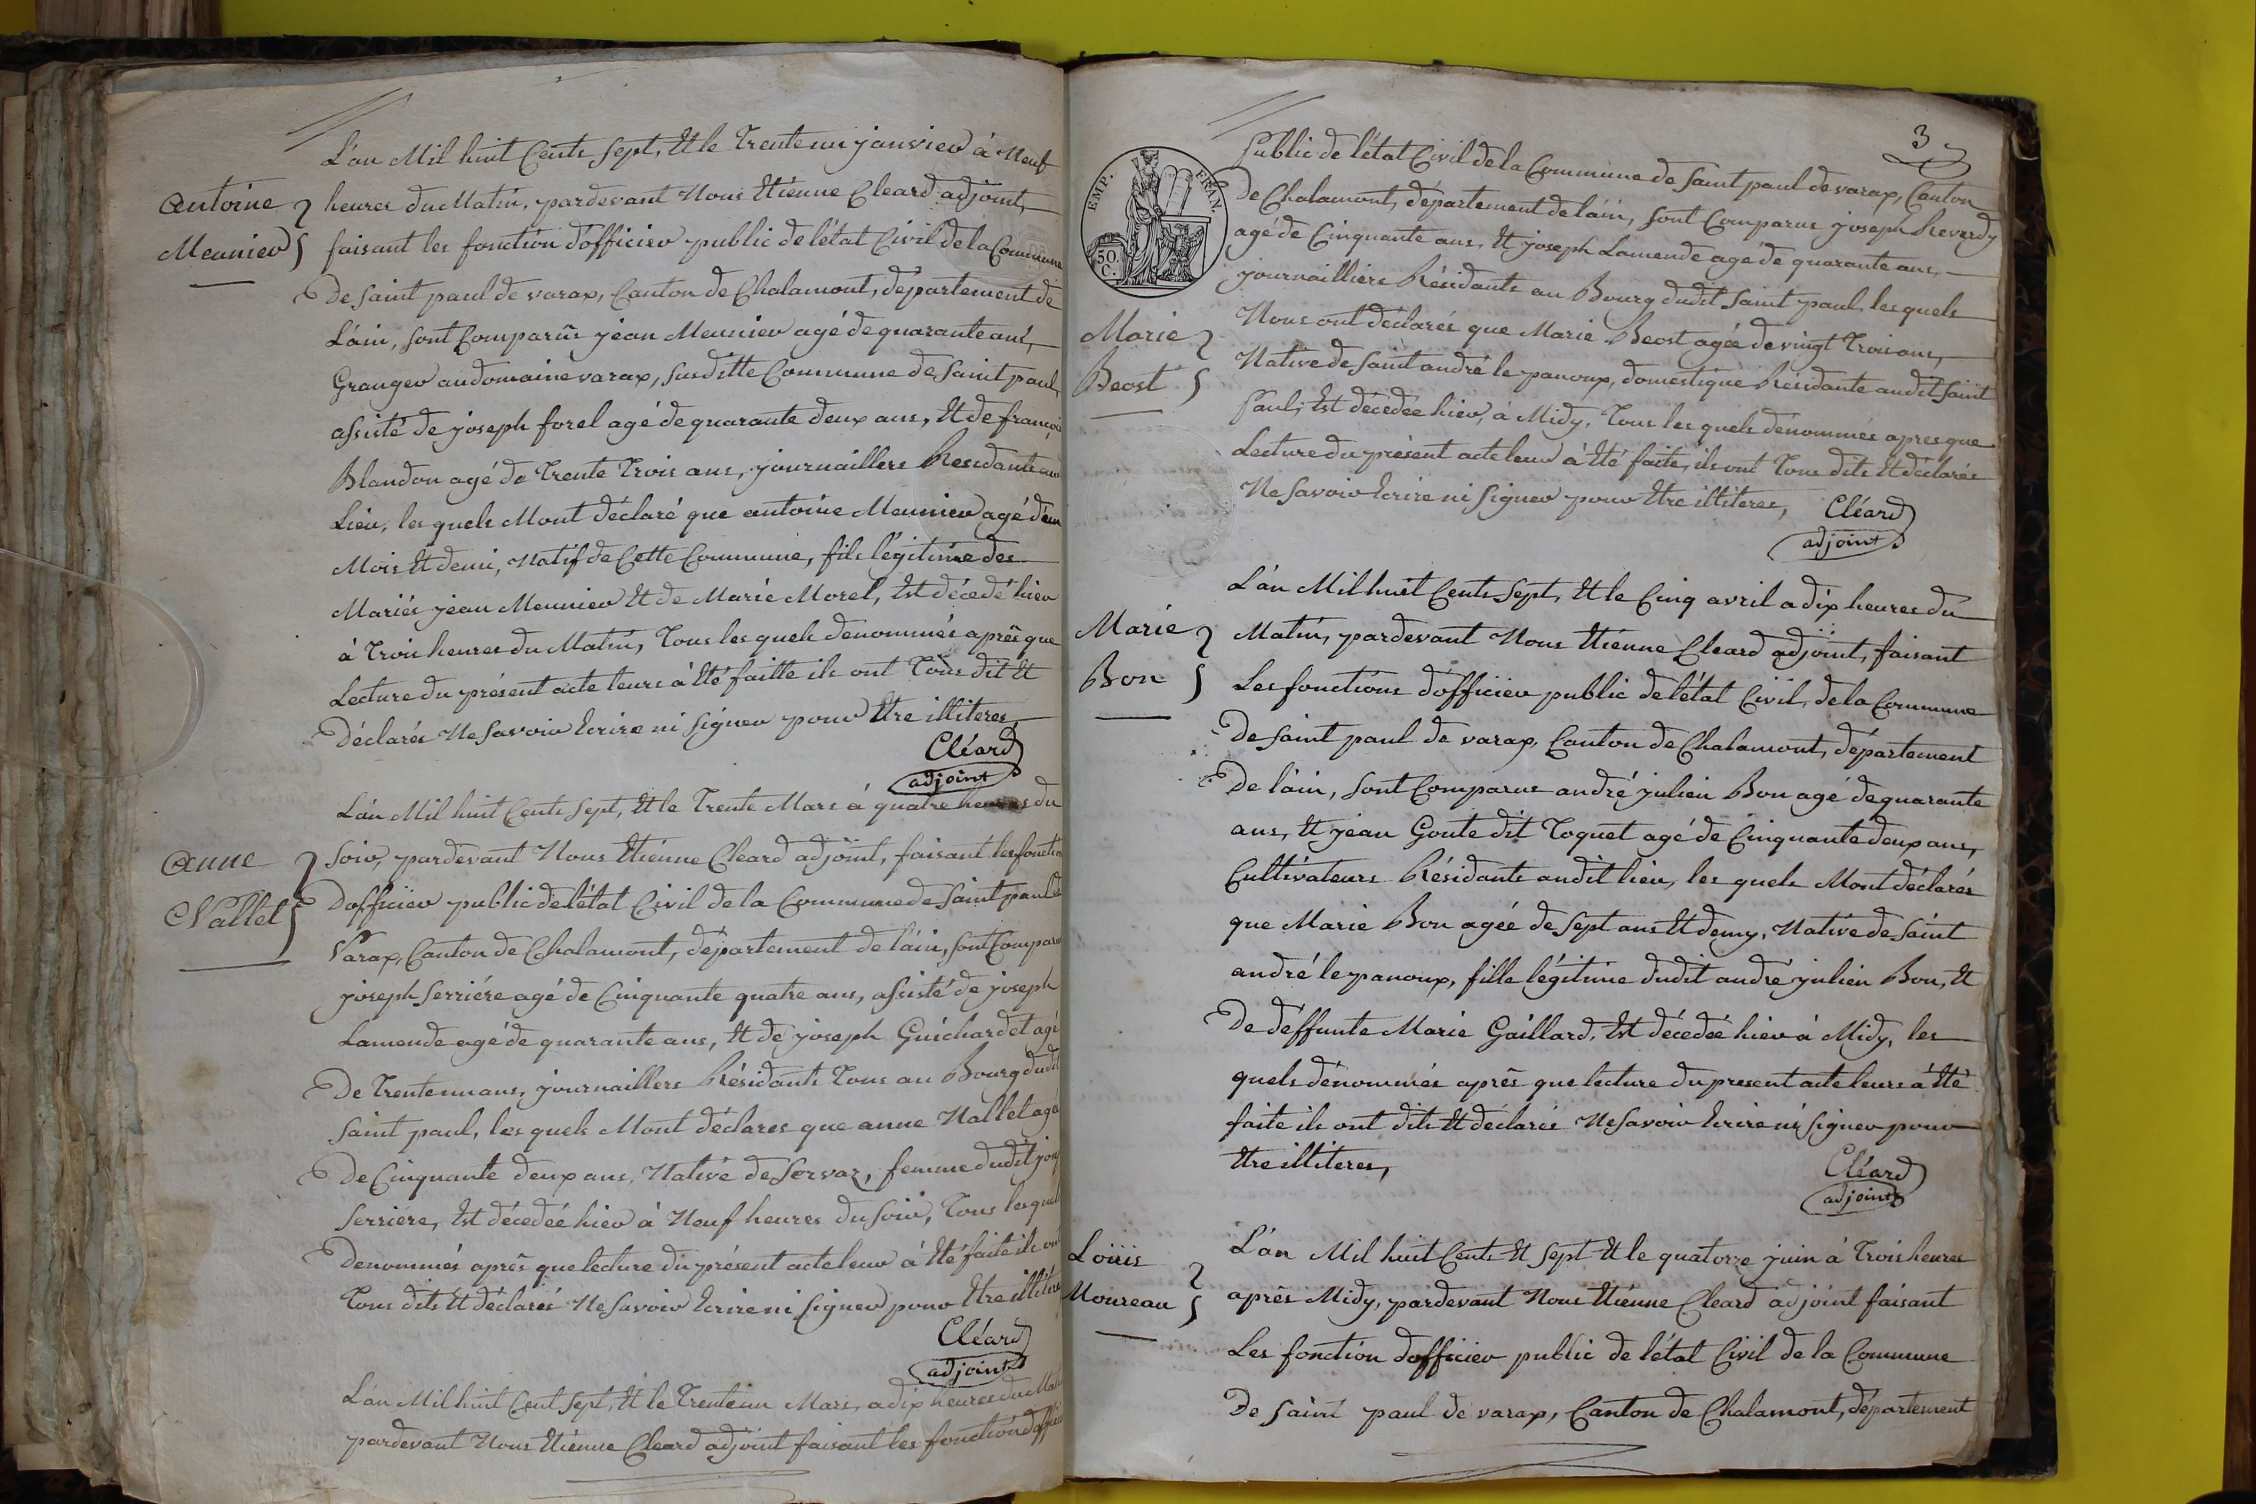 L'an Mil huit Cents Sept, Et le Trente un janvier à Neuf
Antoine
Meunier
heures du Matin, pardevant Nous Etienne Cleard adjoint,
faisant les fonction d'officier public de l'état Civil de la Commune
De Saint paul de varax, Canton de Chalamont, département de
L'ain, sont Comparûs jean Meunier agé de quarante ans,
Granger au domaine varax, susditte Commune de Saint paul,
assisté de joseph forel agé de quarante deux ans, Et de françois
Blandon agé de Trente Trois ans, journailliers Residants au
Lieu, les quels Mont déclaré que antoine Meunier agé d'un
Mois Et demi, Natif de Cette Commune, fils légitime des
Mariés jean Meunier Et de Marie Morel, Est décedé hier
à Trois heures du Matin, Tous les quels denommés après que
Lecture du présent acte leurs à Eté faitte ils ont Tous dit Et
Déclarés Ne Savoir Ecrire ni Signer pour Etre illiteres,
Cléard
adjoint
L'an Mil huit Cents Sept, Et le Trente Mars à quatre heures du
Anne
Nallet
Soir, pardevant Nous Etienne Cleard adjoint, faisant les fonction
D'officier public de l'état Civil de la Commune de Saint paul de
Varax, Canton de Chalamont, département de l'ain, sont Comparus
joseph Serriére agé de Cinquante quatre ans, assisté de joseph
Lamende agé de quarante ans, Et de joseph Guichardet agé
De Trente un ans, journailliers Résidants Tous au Bourg dudit
Saint paul, les quels Mont déclares que anne Nallet agée
De Cinquante deux ans, Native de Servas, femme dudit jos
Serriére, Est décedée hier à Neuf heures du Soir, Tous les quels
Denommés après que lecture du présent acte leur à Eté faite ils ont
Tous dits Et déclarés Ne Savoir Ecrire ni Signer pour Etre illitéres
Cléard
adjoint
L'an Mil huit Cent Sept, Et le Trente un Mars, a dix heures du Matin
pardevant Nous Etienne Cleard adjoint faisant les fonction d'officier
3
EMP. FRAN.
50. C.
Public de l'état Civil de la Commune de Saint paul de varax, Canton
De Chalamont, département de l'ain, sont Comparus joseph Reverdy
agé de Cinquante ans, Et joseph Lamende agé de quarante ans,
journailliers Résidants au Bourg dudit Saint paul, les quels
Marie
Beost
Nous ont déclarés que Marie Beost agée de vingt Trois ans,
Native de Saint andré le panoux, domestique Résidante audit Saint
Paul, Est décedée hier, à Midy, Tous les quels dénommés apres que
Lecture du présent acte leur à Eté faite, ils ont Tous dits Et déclarés
Ne Savoir Ecrire ni Signer pour Etre illiteres,
Cléard
adjoint
L'an Mil huit Cents Sept, Et le Cinq avril a dix heures du
Marie
Bon
Matin, pardevant Nous Etienne Cleard adjoint, faisant
Les fonctions d'officier public de l'état Civil, de la Commune
De Saint paul de varax, Canton de Chalamont, département
De l'ain, sont Comparus andré julien Bon agé de quarante
ans, Et jean Goute dit Toquet agé de Cinquante deux ans,
Cultivateurs Résidants audit lieu, les quels Mont déclarés
que Marie Bon agée de Sept ans Et demy, Native de Saint
andré le panoux, fille légitime dudit andré julien Bon, Et
De deffunte Marie Gaillard, Est décedée hier à Midy, les
quels dénommés après que lecture du present acte leurs à Eté
faite ils ont dits Et déclarés Ne Savoir Ecrire ni Signer pour
Etre illiteres,
Cléard
adjoint
Loüis
Moureau
L'an Mil huit Cents Et Sept Et le quatorze juin à Trois heures
après Midy, pardevant Nous Etienne Cleard adjoint faisant
Les fonction d'officier public de l'état Civil de la Commune
De Saint paul de varax, Canton de Chalamont, département